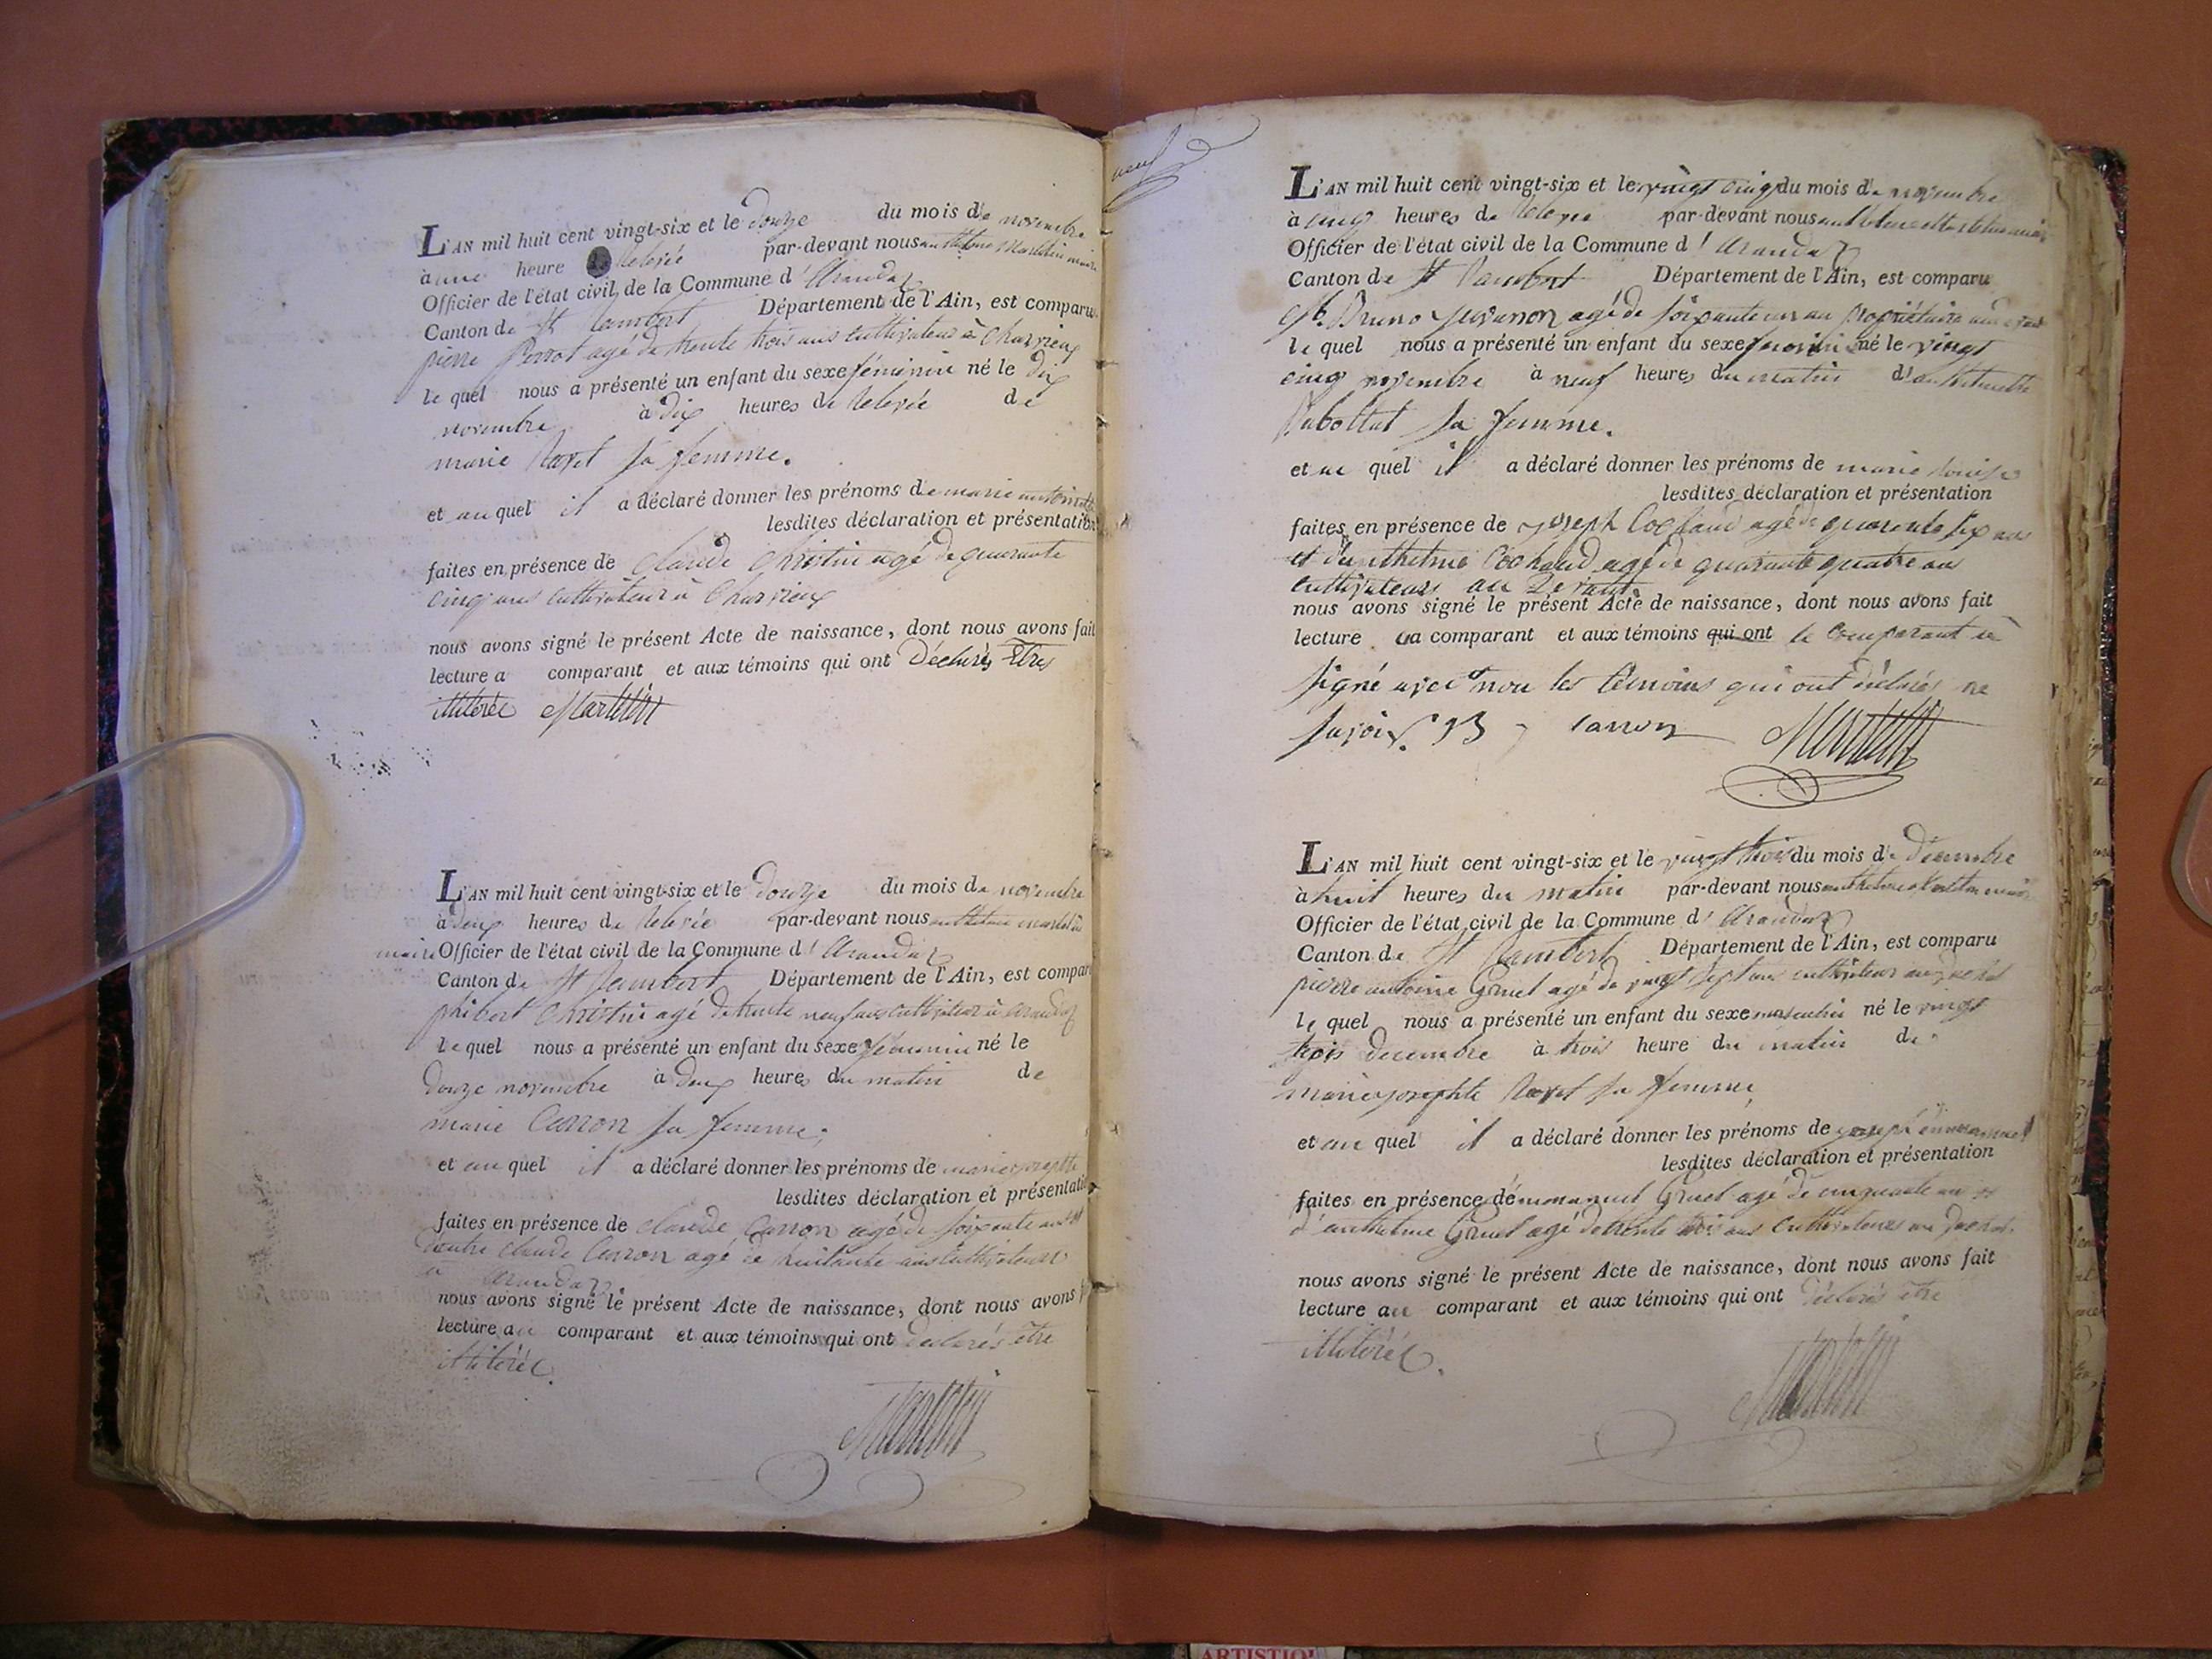 L'AN mil huit cent vingt-six et le Douze du mois de novembre
à une heure de Relevée par-devant nous anthelme Martelin maire
Officier de l'état civil de la Commune d'Arandaz
Canton de St Rambert Département de l'Ain, est comparu
pierre Perrot agé de trente trois ans cultivateur à Charvieux
le quel nous a présenté un enfant du sexe féminin né le dix
novembre à dix heures de Relevée de
marie Ravet sa femme.
et au quel il a déclaré donner les prénoms de marie antoinette
lesdites déclaration et présentation
faites en présence de Claude Christin agé de quarante
cinq ans cultivateur à Charvieux
nous avons signé le présent Acte de naissance, dont nous avons fait
lecture a comparant et aux témoins qui ont Déclarés Etres
illiterée Martelin
L'AN mil huit cent vingt-six et le Douze du mois de novembre
à deux heures de Relevée par-devant nous anthelme martelin
maire Officier de l'état civil de la Commune d'Arandaz
Canton de St Rambert Département de l'Ain, est compar
philbert Christin agé de trente neuf ans cultivateur à arandaz
le quel nous a présenté un enfant du sexe féminin né le
douze novembre à deux heures du matin de
marie Carron sa femme;
et au quel il a déclaré donner les prénoms de marie josephte
lesdites déclaration et présentati
faites en présence de claude Carron agé de soixante ans et
dautre claude Carron agé de huitante ans cultivateurs
à arandaz
nous avons signé le présent Acte de naissance, dont nous avons f
lecture au comparant et aux témoins qui ont declarés être
illiterée.
Martelin
neuf
L'AN mil huit cent vingt-six et le vingt cinq du mois de novembre
à cinq heures de Relevée par-devant nous anthelme Martelin maire
Officier de l'état civil de la Commune d'Arandaz
Canton de St Rambert Département de l'Ain, est comparu
Bruno agé de soixante un an propriétaire
le quel nous a présenté un enfant du sexe né le vingt
cinq novembre à neuf heures du matin d'anthelmette
Rabollat sa femme.
et au quel il a déclaré donner les prénoms de marie louise
lesdites déclaration et présentation
faites en présence de joseph Cochaud agé de quarente six ans
et d'anthelme Cochaud agé de quarante quatre ans
cultivateurs au
nous avons signé le présent Acte de naissance, dont nous avons fait
lecture au comparant et aux témoins qui ont le comparant à
signé avec nou les témoins qui ont déclarés ne
savoir. Martelin
L'AN mil huit cent vingt-six et le vingt trois du mois de Décembre
à huit heures du matin par-devant nous anthelme Martelin maire
Officier de l'état civil de la Commune d'Arandaz
Canton de St Rambert Département de l'Ain, est comparu
pierre antoine Gruel agé de vingt sept ans cultivateur au
le quel nous a présenté un enfant du sexe masculin né le vingt
trois decembre à trois heure du matin de
marie josephte Ravet sa femme,
et au quel il a déclaré donner les prénoms de joseph emmanuel
lesdites déclaration et présentation
faites en présence démmanuel Gruel agé de cinquante un et
d'anthelme Gruel agé de trente trois ans cultivateurs au
nous avons signé le présent Acte de naissance, dont nous avons fait
lecture au comparant et aux témoins qui ont déclarés être
illiterée.
Martelin
ARTISTIQ